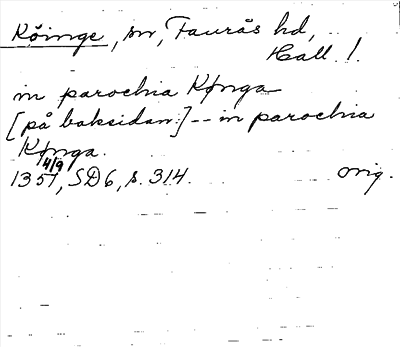 Köinge, sn, Faurås hd,
Hall. l.
in parochia Kønga
[på baksidan:] -- in parochia
Kønga.
4/9
1357, SD6, s. 314. orig.